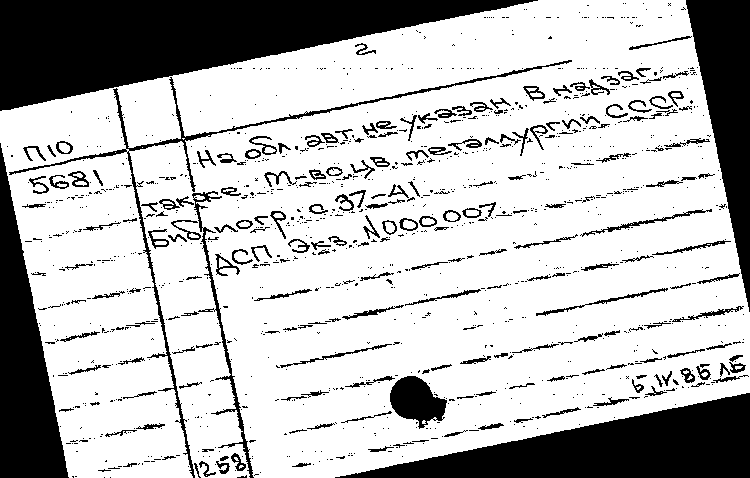 2
П10
5681
На обл. авт. не указан. В надзаг.
также: М-во цв. металлургии СССР.
Библиогр.: с. 37-41.
ДСП. Экз. N000007.
Б.IX.85 ЛБ
1258